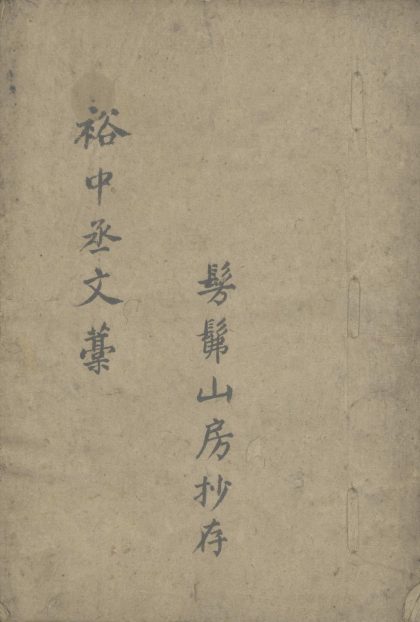 裕中丞文藁
髣髴山房抄存